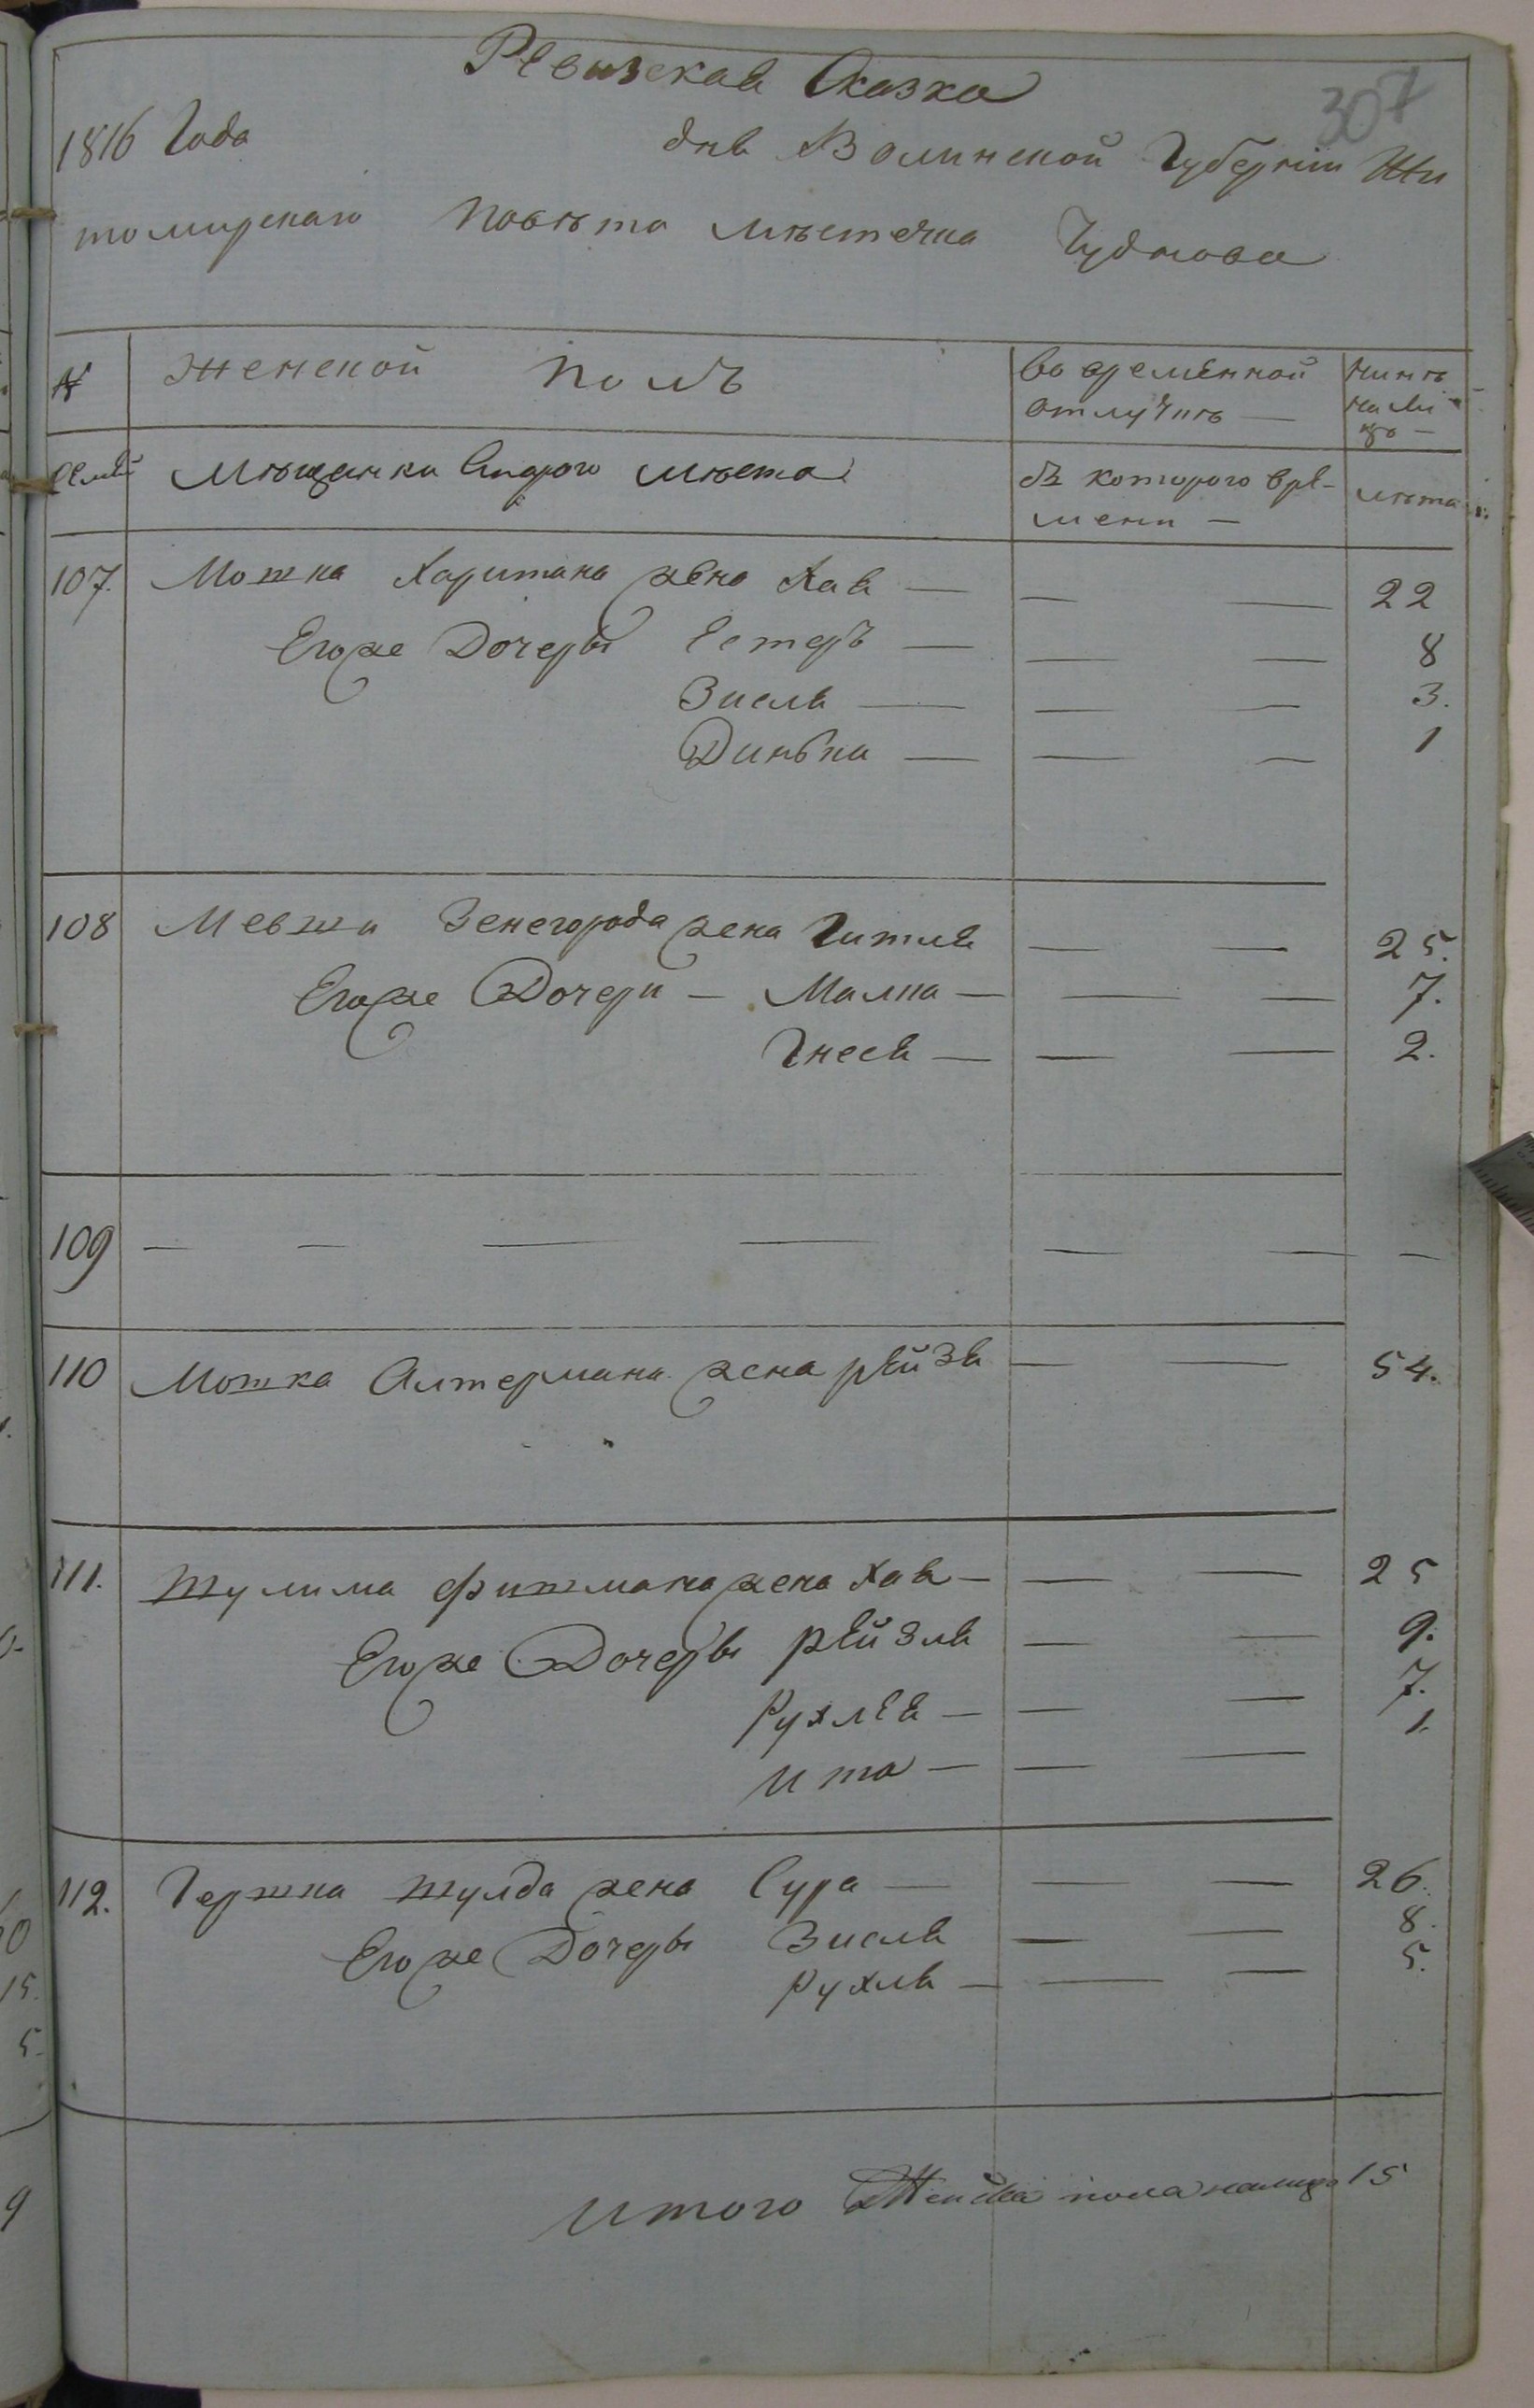 307
Ревизская Сказка
1816 Года дня Волинской Губернии Жи
томирскаго Повѣта мѣстечка Чуднова
№ Женской Полъ во временной отлучкѣ нынѣ на ли цо
семьи Мѣщанки Старого мѣста съ которого вре- мени лѣта
107. Мошка Харитана жена Хая — — — 22
Егоже Дочеры Естеръ — — — 8
Зисля — — — 3.
Динька — — — 1
108 Мевши Зенегорода жена Гитля — — 25.
Егоже Дочери — Малка — — — 7.
Гнеся — — — 2.
109 — — — — — — —
110 Мошка Алтермана жена рейзя — — 54.
111. Шулима Фишмана жена Хая — — — 25
Егоже Дочеры Рейзля — — 9.
Рухлея — — — 7.
Ита — — — 1.
112. Гершка Шулда жена Сура — — — 26.
Егоже Дочеры Зисля — — 8.
Рухля — — — 5.
Итого пола налицо 15